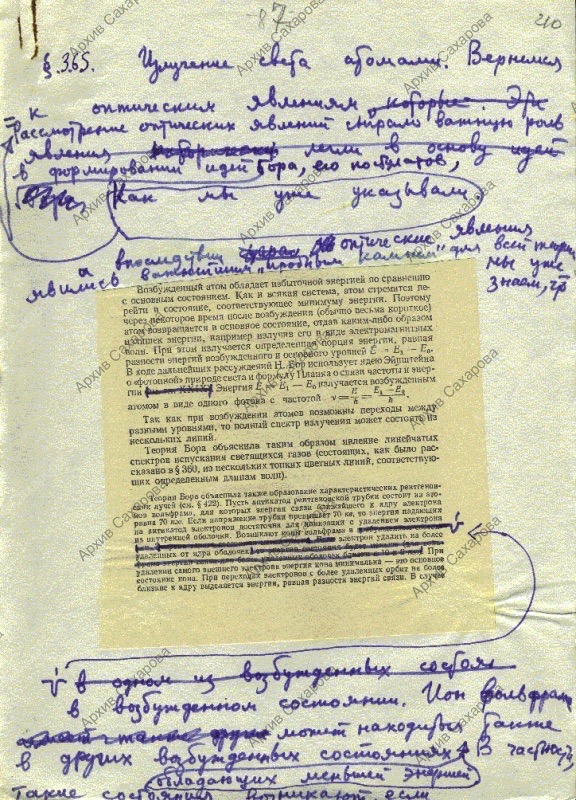 87
210
§ 365. Излучение света атомами. Вернемся
к оптическим явлениям, которые. Эти
Рассмотрение оптических явлений сыграло важную роль
явления легли в основу идей
в формировании идей Бора, его постулатов,
Как мы уже указывали.
а впоследствии оптические явления
явились важнейшим „пробным камнем" для всей теории
мы уже
знаем, что
Возбужденный атом обладает избыточной энергией по сравнению
с основным состоянием. Как и всякая система, атом стремится пе-
рейти в состояние, соответствующее минимуму энергии. Поэтому
через некоторое время после возбуждения (обычно весьма короткое)
атом возвращается в основное состояние, отдав каким-либо образом
излишек энергии, например излучив его в виде электромагнитных
волн. При этом излучается определенная порция энергии, равная
разности энергий возбужденного и основного уровней E = E₁ — E₀.
В ходе дальнейших рассуждений Н. Бор использует идею Эйнштейна
о «фотонной» природе света и формулу Планка о связи частоты и энер-
гии Энергия E = E₁ — E₀ излучается возбужденным
атомом в виде одного фотона с частотой ν = E/h = (E₁ — E₀)/h.
Так как при возбуждении атомов возможны переходы между
разными уровнями, то полный спектр излучения может состоять из
нескольких линий.
Теория Бора объяснила таким образом явление линейчатых
спектров испускания светящихся газов (состоящих, как было рас-
сказано в § 360, из нескольких тонких цветных линий, соответствую-
щих определенным длинам волн).
Теория Бора объяснила также образование характеристических рентгенов-
ских лучей (см. § 422). Пусть антикатод рентгеновской трубки состоит из ато-
мов вольфрама, для которых энергия связи ближайшего к ядру электрона
равна 70 кэв. Если напряжение трубки превышает 70 кв, то энергия падающих
на антикатод электронов достаточна для ионизации с удалением электрона
из внутренней оболочки. Возникают ионы вольфрама
электрон удалить из более
удаленных от ядра оболочек При
удалении самого внешнего электрона энергия иона минимальна — это основное
состояние иона. При переходах электронов с более удаленных орбит на более
близкие к ядру выделяется энергия, равная разности энергий связи. В случае
в одном из возбужденных состоян
в возбужденном состоянии. Ион вольфрама
может находиться также
в других возбужденных состояниях. В частности,
обладающих меньшей энергией
Такие состояния возникают если
Архив Сахарова